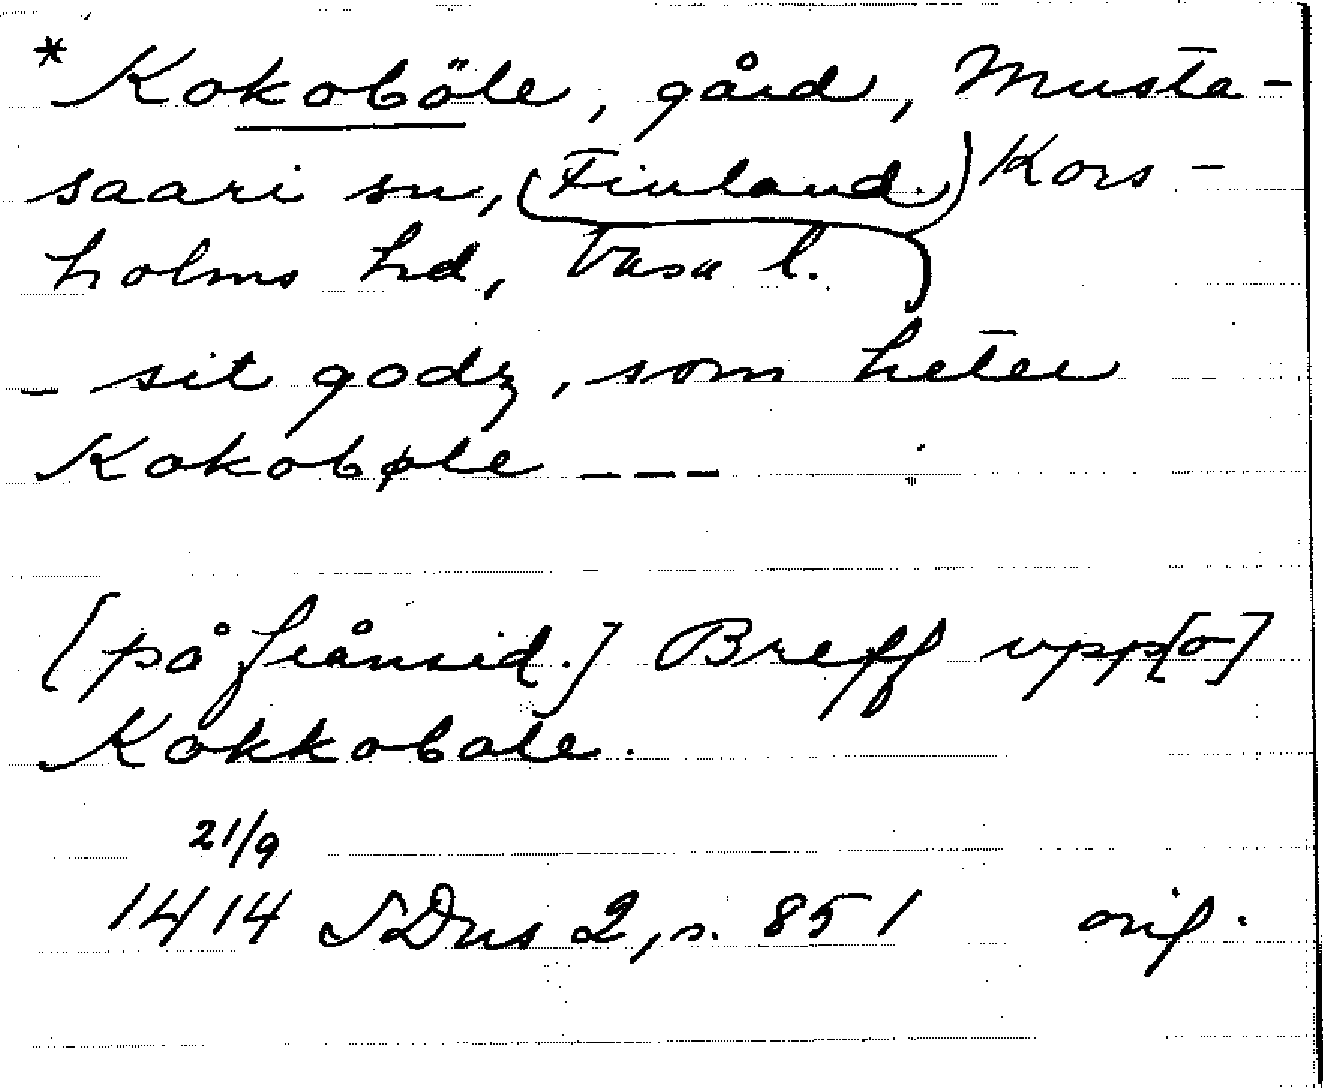 * Kokoböle, gård, Musta-
saari sn, (Finland.) Kors-
holms hd, Vasa l.
- sit godz, som heter
Kokobøle ---
[på frånsid.] Breff vpp[o]
Kokkobole.
21/9
1414 SDns 2, s. 851 orig.